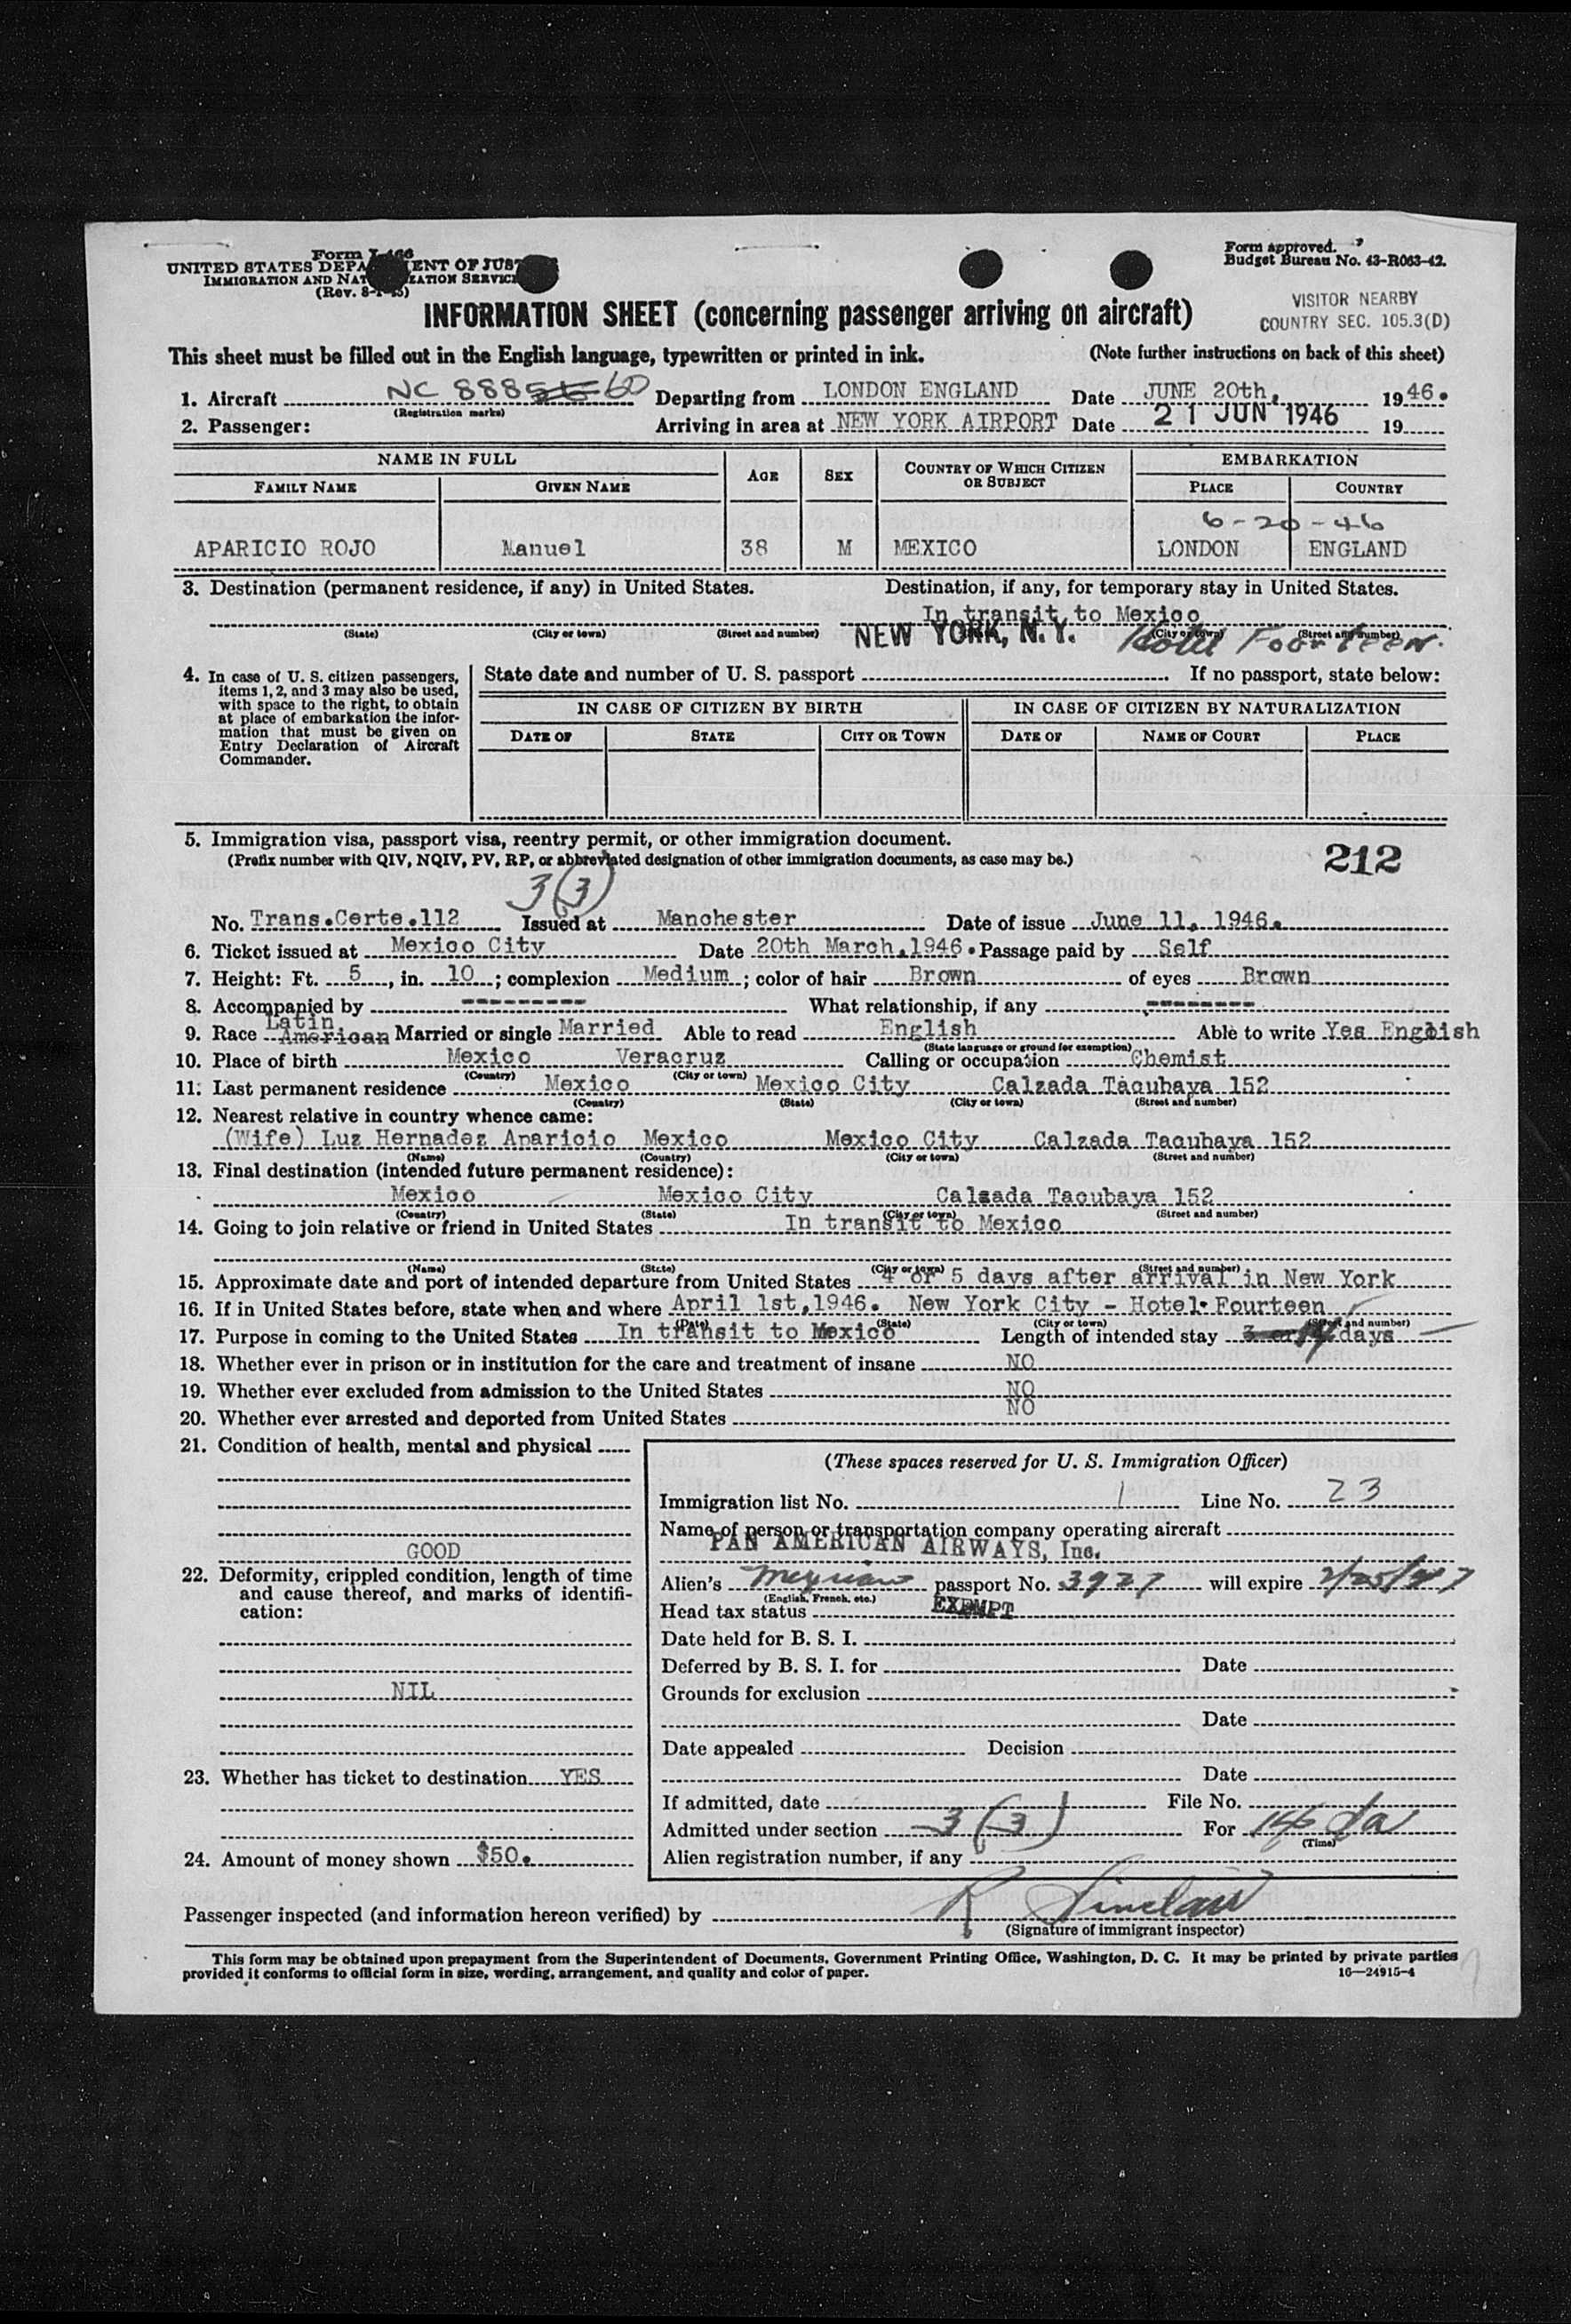 Form I-466
UNITED STATES DEPARTMENT OF JUSTICE
IMMIGRATION AND NATURALIZATION SERVICE
(Rev. 8-1-45)
Form approved.
Budget Bureau No. 43-R063-42.
INFORMATION SHEET (concerning passenger arriving on aircraft)
VISITOR NEARBY
COUNTRY SEC. 105.3(D)
This sheet must be filled out in the English language, typewritten or printed in ink. (Note further instructions on back of this sheet)
1. Aircraft NC 888 60 Departing from LONDON ENGLAND Date JUNE 20th, 1946.
(Registration marks)
2. Passenger: Arriving in area at NEW YORK AIRPORT Date 21 JUN 1946 19
NAME IN FULL AGE SEX COUNTRY OF WHICH CITIZEN OR SUBJECT EMBARKATION
FAMILY NAME GIVEN NAME PLACE COUNTRY
6-20-46
APARICIO ROJO Manuel 38 M MEXICO LONDON ENGLAND
3. Destination (permanent residence, if any) in United States. Destination, if any, for temporary stay in United States.
In transit to Mexico
(State) (City or town) (Street and number) NEW YORK, N.Y. (City or town) (Street and number) Hotel Fourteen.
4. In case of U. S. citizen passengers, items 1, 2, and 3 may also be used, with space to the right, to obtain at place of embarkation the information that must be given on Entry Declaration of Aircraft Commander.
State date and number of U. S. passport If no passport, state below:
IN CASE OF CITIZEN BY BIRTH IN CASE OF CITIZEN BY NATURALIZATION
DATE OF STATE CITY OR TOWN DATE OF NAME OF COURT PLACE
5. Immigration visa, passport visa, reentry permit, or other immigration document.
(Prefix number with QIV, NQIV, PV, RP, or abbreviated designation of other immigration documents, as case may be.) 212
3(3)
No. Trans.Certe.112 Issued at Manchester Date of issue June 11, 1946.
6. Ticket issued at Mexico City Date 20th March,1946. Passage paid by Self
7. Height: Ft. 5, in. 10; complexion Medium; color of hair Brown of eyes Brown
8. Accompanied by --------- What relationship, if any --------
9. Race Latin American Married or single Married Able to read English Able to write Yes English
(State language or ground for exemption)
10. Place of birth Mexico Veracruz Calling or occupation Chemist
(Country) (City or town)
11. Last permanent residence Mexico Mexico City Calzada Tacubaya 152
(Country) (State) (City or town) (Street and number)
12. Nearest relative in country whence came:
(Wife) Luz Hernadez Aparicio Mexico Mexico City Calzada Tacubaya 152
(Name) (Country) (City or town) (Street and number)
13. Final destination (intended future permanent residence):
Mexico Mexico City Calzada Tacubaya 152
(Country) (State) (City or town) (Street and number)
14. Going to join relative or friend in United States In transit to Mexico
(Name) (State) (City or town) (Street and number)
15. Approximate date and port of intended departure from United States 4 or 5 days after arrival in New York
16. If in United States before, state when and where April 1st,1946. New York City - Hotel Fourteen
(Date) (State) (City or town) (Street and number)
17. Purpose in coming to the United States In transit to Mexico Length of intended stay 3 or 14 days
18. Whether ever in prison or in institution for the care and treatment of insane NO
19. Whether ever excluded from admission to the United States NO
20. Whether ever arrested and deported from United States NO
21. Condition of health, mental and physical
GOOD
22. Deformity, crippled condition, length of time and cause thereof, and marks of identification:
NIL
23. Whether has ticket to destination YES
24. Amount of money shown $50.
(These spaces reserved for U. S. Immigration Officer)
Immigration list No. 1 Line No. 23
Name of person or transportation company operating aircraft
PAN AMERICAN AIRWAYS, Inc.
Alien's Mexican passport No. 3927 will expire
(English, French, etc.)
Head tax status EXEMPT
Date held for B. S. I.
Deferred by B. S. I. for Date
Grounds for exclusion
Date
Date appealed Decision
Date
If admitted, date File No.
Admitted under section 3(3) For 14 da
(Time)
Alien registration number, if any
Passenger inspected (and information hereon verified) by R Sinclair
(Signature of immigrant inspector)
This form may be obtained upon prepayment from the Superintendent of Documents, Government Printing Office, Washington, D. C. It may be printed by private parties
provided it conforms to official form in size, wording, arrangement, and quality and color of paper. 16—24915-4